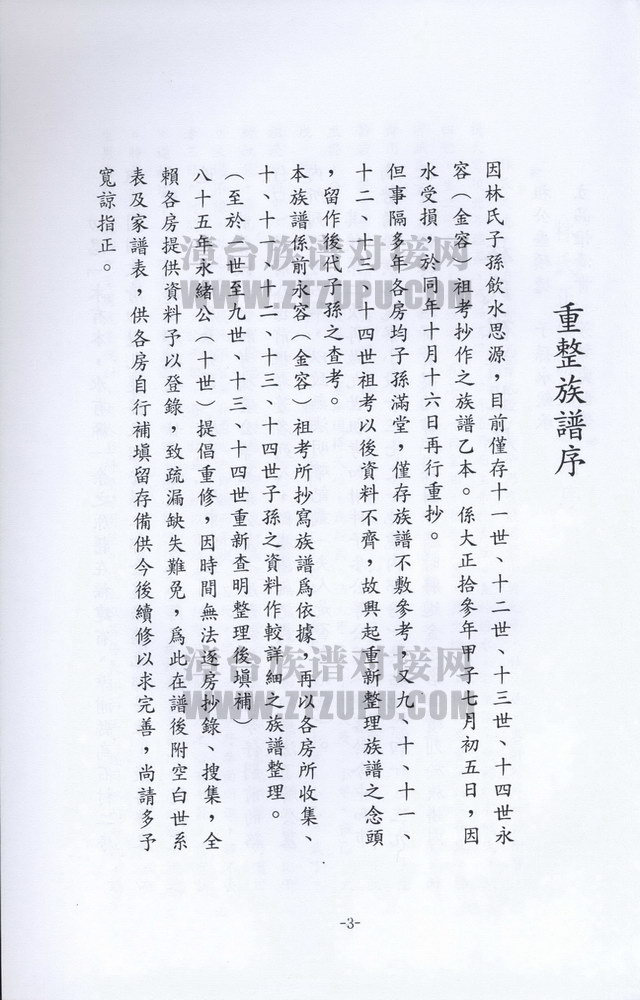 重整族譜序
因林氏子孫飲水思源，目前僅存十一世、十二世、十三世、十四世永
容（金容）祖考抄作之族譜乙本。係大正拾參年甲子七月初五日，因
水受損，於同年十月十六日再行重抄。
但事隔多年各房均子孫滿堂，僅存族譜不敷參考，又九、十、十一、
十二、十三、十四世祖考以後資料不齊，故興起重新整理族譜之念頭
，留作後代子孫之查考。
本族譜係前永容（金容）祖考所抄寫族譜為依據，再以各房所收集、
十、十一、十二、十三、十四世子孫之資料作較詳細之族譜整理。
（至於一世至九世、十三、十四世重新查明整理後填補）
八十五年永緒公（十世）提倡重修，因時間無法逐房抄錄、搜集，全
賴各房提供資料予以登錄，致疏漏缺失難免，為此在譜後附空白世系
表及家譜表，供各房自行補填留存備供今後續修以求完善，尚請多予
寬諒指正。
漳台族谱对接网
WWW.ZTZUPU.COM
漳台族谱对接网
WWW.ZTZUPU.COM
-3-